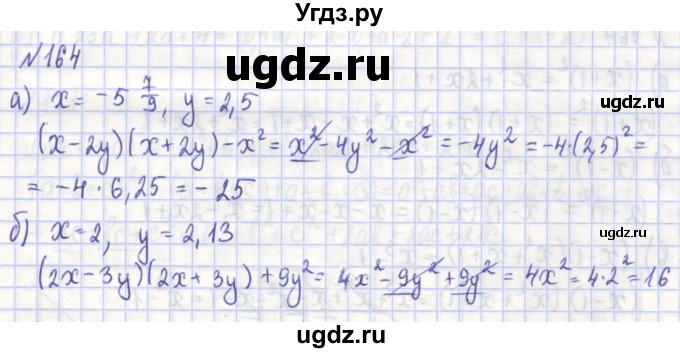 Угдз.ру
№164
ugdz.ru
а) x = -5 7/9, y = 2,5
(x-2y)(x+2y)-x² = x²-4y²-x² = -4y² = -4·(2,5)² =
= -4·6,25 = -25
ugdz.ru
ugdz.ru
б) x=2, y = 2,13
(2x-3y)(2x+3y)+9y² = 4x²-9y²+9y² = 4x² = 4·2² = 16
ugdz.ru
ugdz.ru